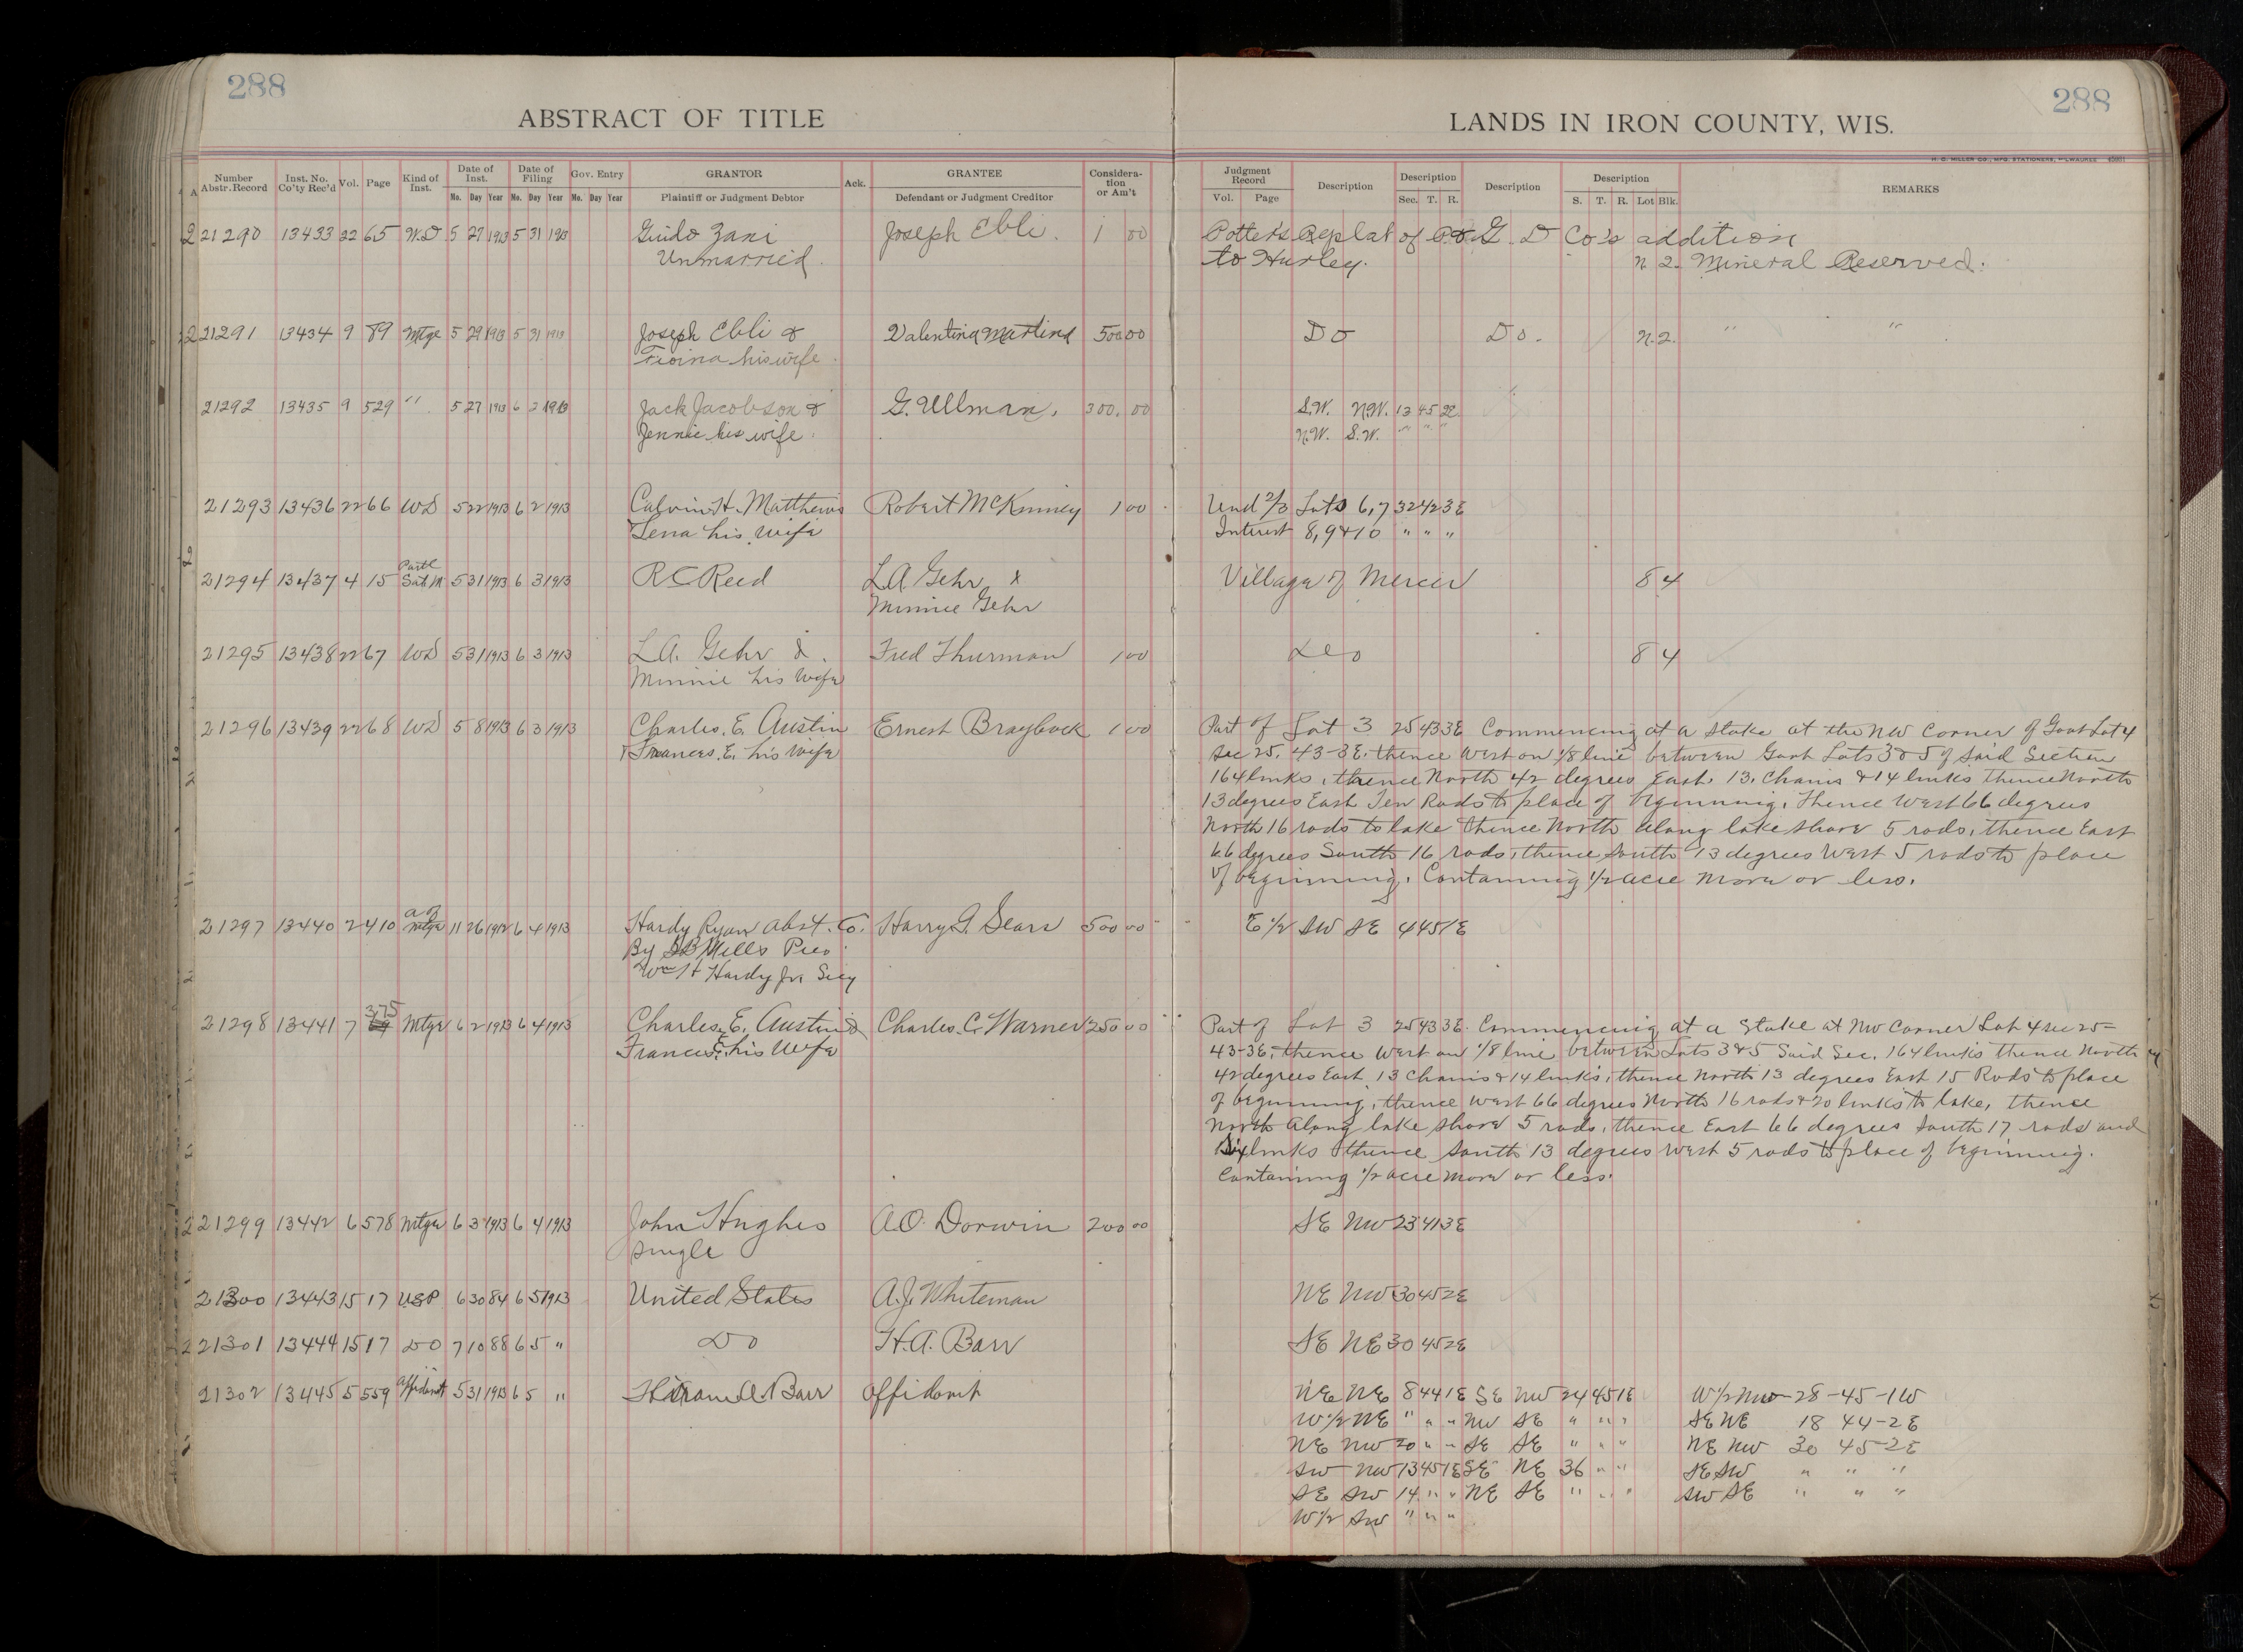 288
288
ABSTRACT OF TITLE
LANDS IN IRON COUNTY, WIS.
H. C. MILLER CO., MFG. STATIONERS, MILWAUKEE
Number Abstr. Record Inst. No. Co'ty Rec'd Vol. Page Kind of Inst. Date of Inst. Date of Filing Gov. Entry GRANTOR Ack. GRANTEE Considera-tion or Am't Judgment Record Description Description Description Description REMARKS
No. Day Year No. Day Year Mo. Day Year Plaintiff or Judgment Debtor Defendant or Judgment Creditor Vol. Page Sec. T. R. S. T. R. Lot Blk.
21290 13433 22 65 W.D 5 27 1913 5 31 1913 Guido Zani Joseph Ebli. 1 00 Potter's Replat of P & G D Co's addition
Unmarried. to Hurley. n 2. Mineral Reserved.
21291 13434 9 89 Mtge 5 29 1913 5 31 1913 Joseph Ebli & Valentina Martina 500 00 Do Do. n. 2. " "
his wife.
21292 13435 9 529 " 5 27 1913 6 2 1913 Jack Jacobson & G. Ullman. 300. 00 S.W. N.W. 13 45 2E
Jennie his wife. N.W. S.W. " " "
21293 13436 22 66 WD 5 22 1913 6 2 1913 Calvin H. Matthews Robert McKinney 1 00 Und 2/3 Lots 6,7 32 42 3E
& Lena his wife Interest 8,9 & 10 " " "
21294 13437 4 15 Partl Sat M 5 31 1913 6 3 1913 R C Reed L.A. Gehr & Village of Mercer 8 4
Minnie Gehr
21295 13438 22 67 WD 5 31 1913 6 3 1913 L.A. Gehr & Fred Thurman 1 00 Do 8 4
Minnie his wife
21296 13439 22 68 WD 5 8 1913 6 3 1913 Charles. E. Austin Ernest Braybock 1 00 Part of Lot 3 25 43 3E Commencing at a stake at the NW Corner of Govt Lot 4
& Frances. E. his wife Sec 25. 43-3E. thence West on 1/8 line between Govt Lots 3 & 5 of said Section
164 links, thence North 42 degrees East. 13. Chains & 14 links thence North
13 degrees East Ten Rods to place of beginning. Thence West 66 degrees
North 16 rods to lake thence North along lake shore 5 rods, thence East
66 degrees South 16 rods, thence South 13 degrees West 5 rods to place
of beginning. Containing 1/2 acre more or less.
21297 13440 2 410 a of mtge 11 26 1912 6 4 1913 Hardy Ryan Abst. Co. Harry G. Sears 500 00 E 1/2 SW SE 4 45 1E
By Mills Pres
Wm H Hardy Jr. Secy
21298 13441 7 375 Mtge 6 2 1913 6 4 1913 Charles. E. Austin & Charles. C. Warner 250 00 Part of Lot 3 25 43 3E. Commencing at a Stake at NW Corner Lot 4 sec 25-
Frances E. his wife 43-3E, thence West on 1/8 line between Lots 3 & 5 Said Sec. 164 links thence North
42 degrees East. 13 Chains & 14 links, thence North 13 degrees East 15 Rods to place
of beginning, thence West 66 degrees North 16 rods & 20 links to lake, thence
North along lake shore 5 rods, thence East 66 degrees South 17 rods and
Six links thence South 13 degrees West 5 rods to place of beginning.
Containing 1/2 acre more or less.
21299 13442 6 578 Mtge 6 3 1913 6 4 1913 John Hughes A.O. Dorwin 200 00 SE NW 23 41 3E
single
21300 13443 15 17 USP 6 30 84 6 5 1913 United States A.J. Whiteman NE NW 30 45 2E
21301 13444 15 17 Do 7 10 88 6 5 " Do H.A. Barr SE NE 30 45 2E
21302 13445 5 559 Affidavit 5 31 1913 6 5 " Hiram A. Barr Affidavit NE NE 8 44 1E SE NW 24 45 1E W 1/2 NW - 28 - 45 - 1W
W 1/2 NE " " " NW SE " " " SE NE 18 44 - 2E
NE NW 20 " " SE SE " " " NE NW 30 45 - 2E
SW NW 13 45 1E SE NE 36 " " SE SW " " "
SE SW 14 " " NE SE " " " SW SE " " "
W 1/2 SW " " "